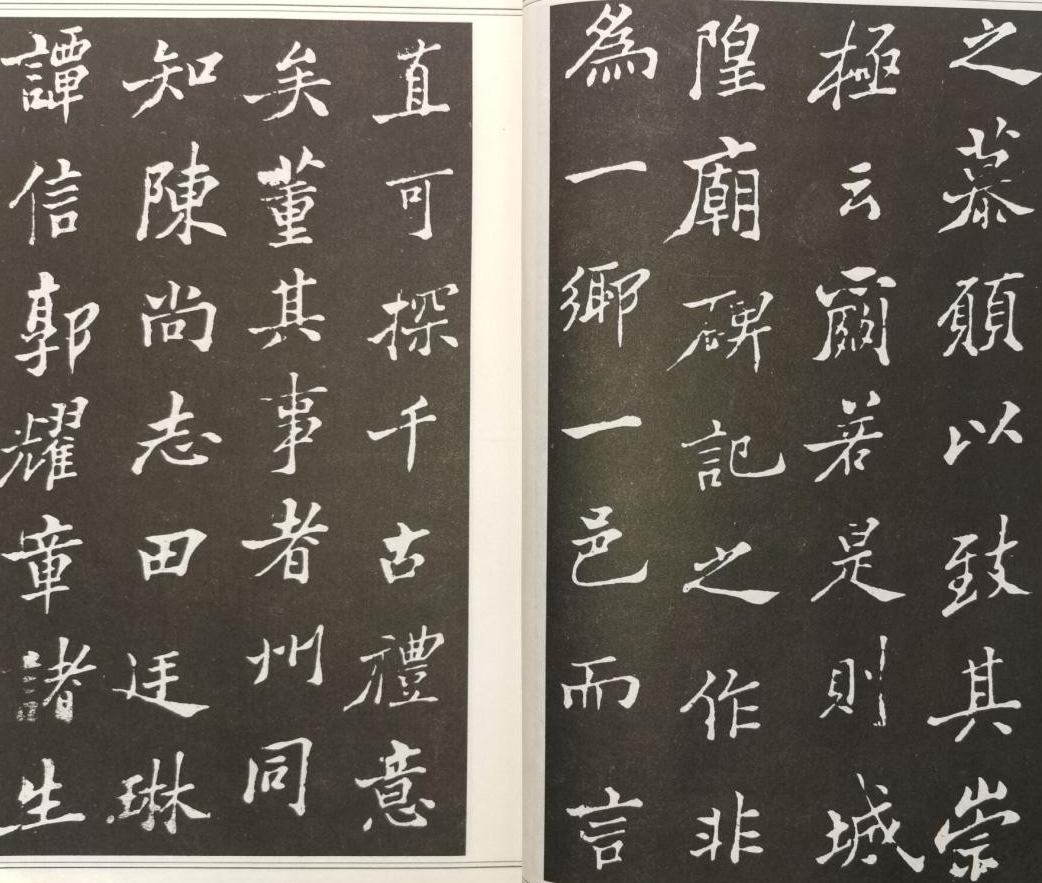 之慕願以致其崇
極云爾若是則城
隍廟碑記之作非
爲一鄉一邑而言
直可探千古禮意
矣董其事者州同
知陳尚志田廷琳
譚信郭耀章諸生